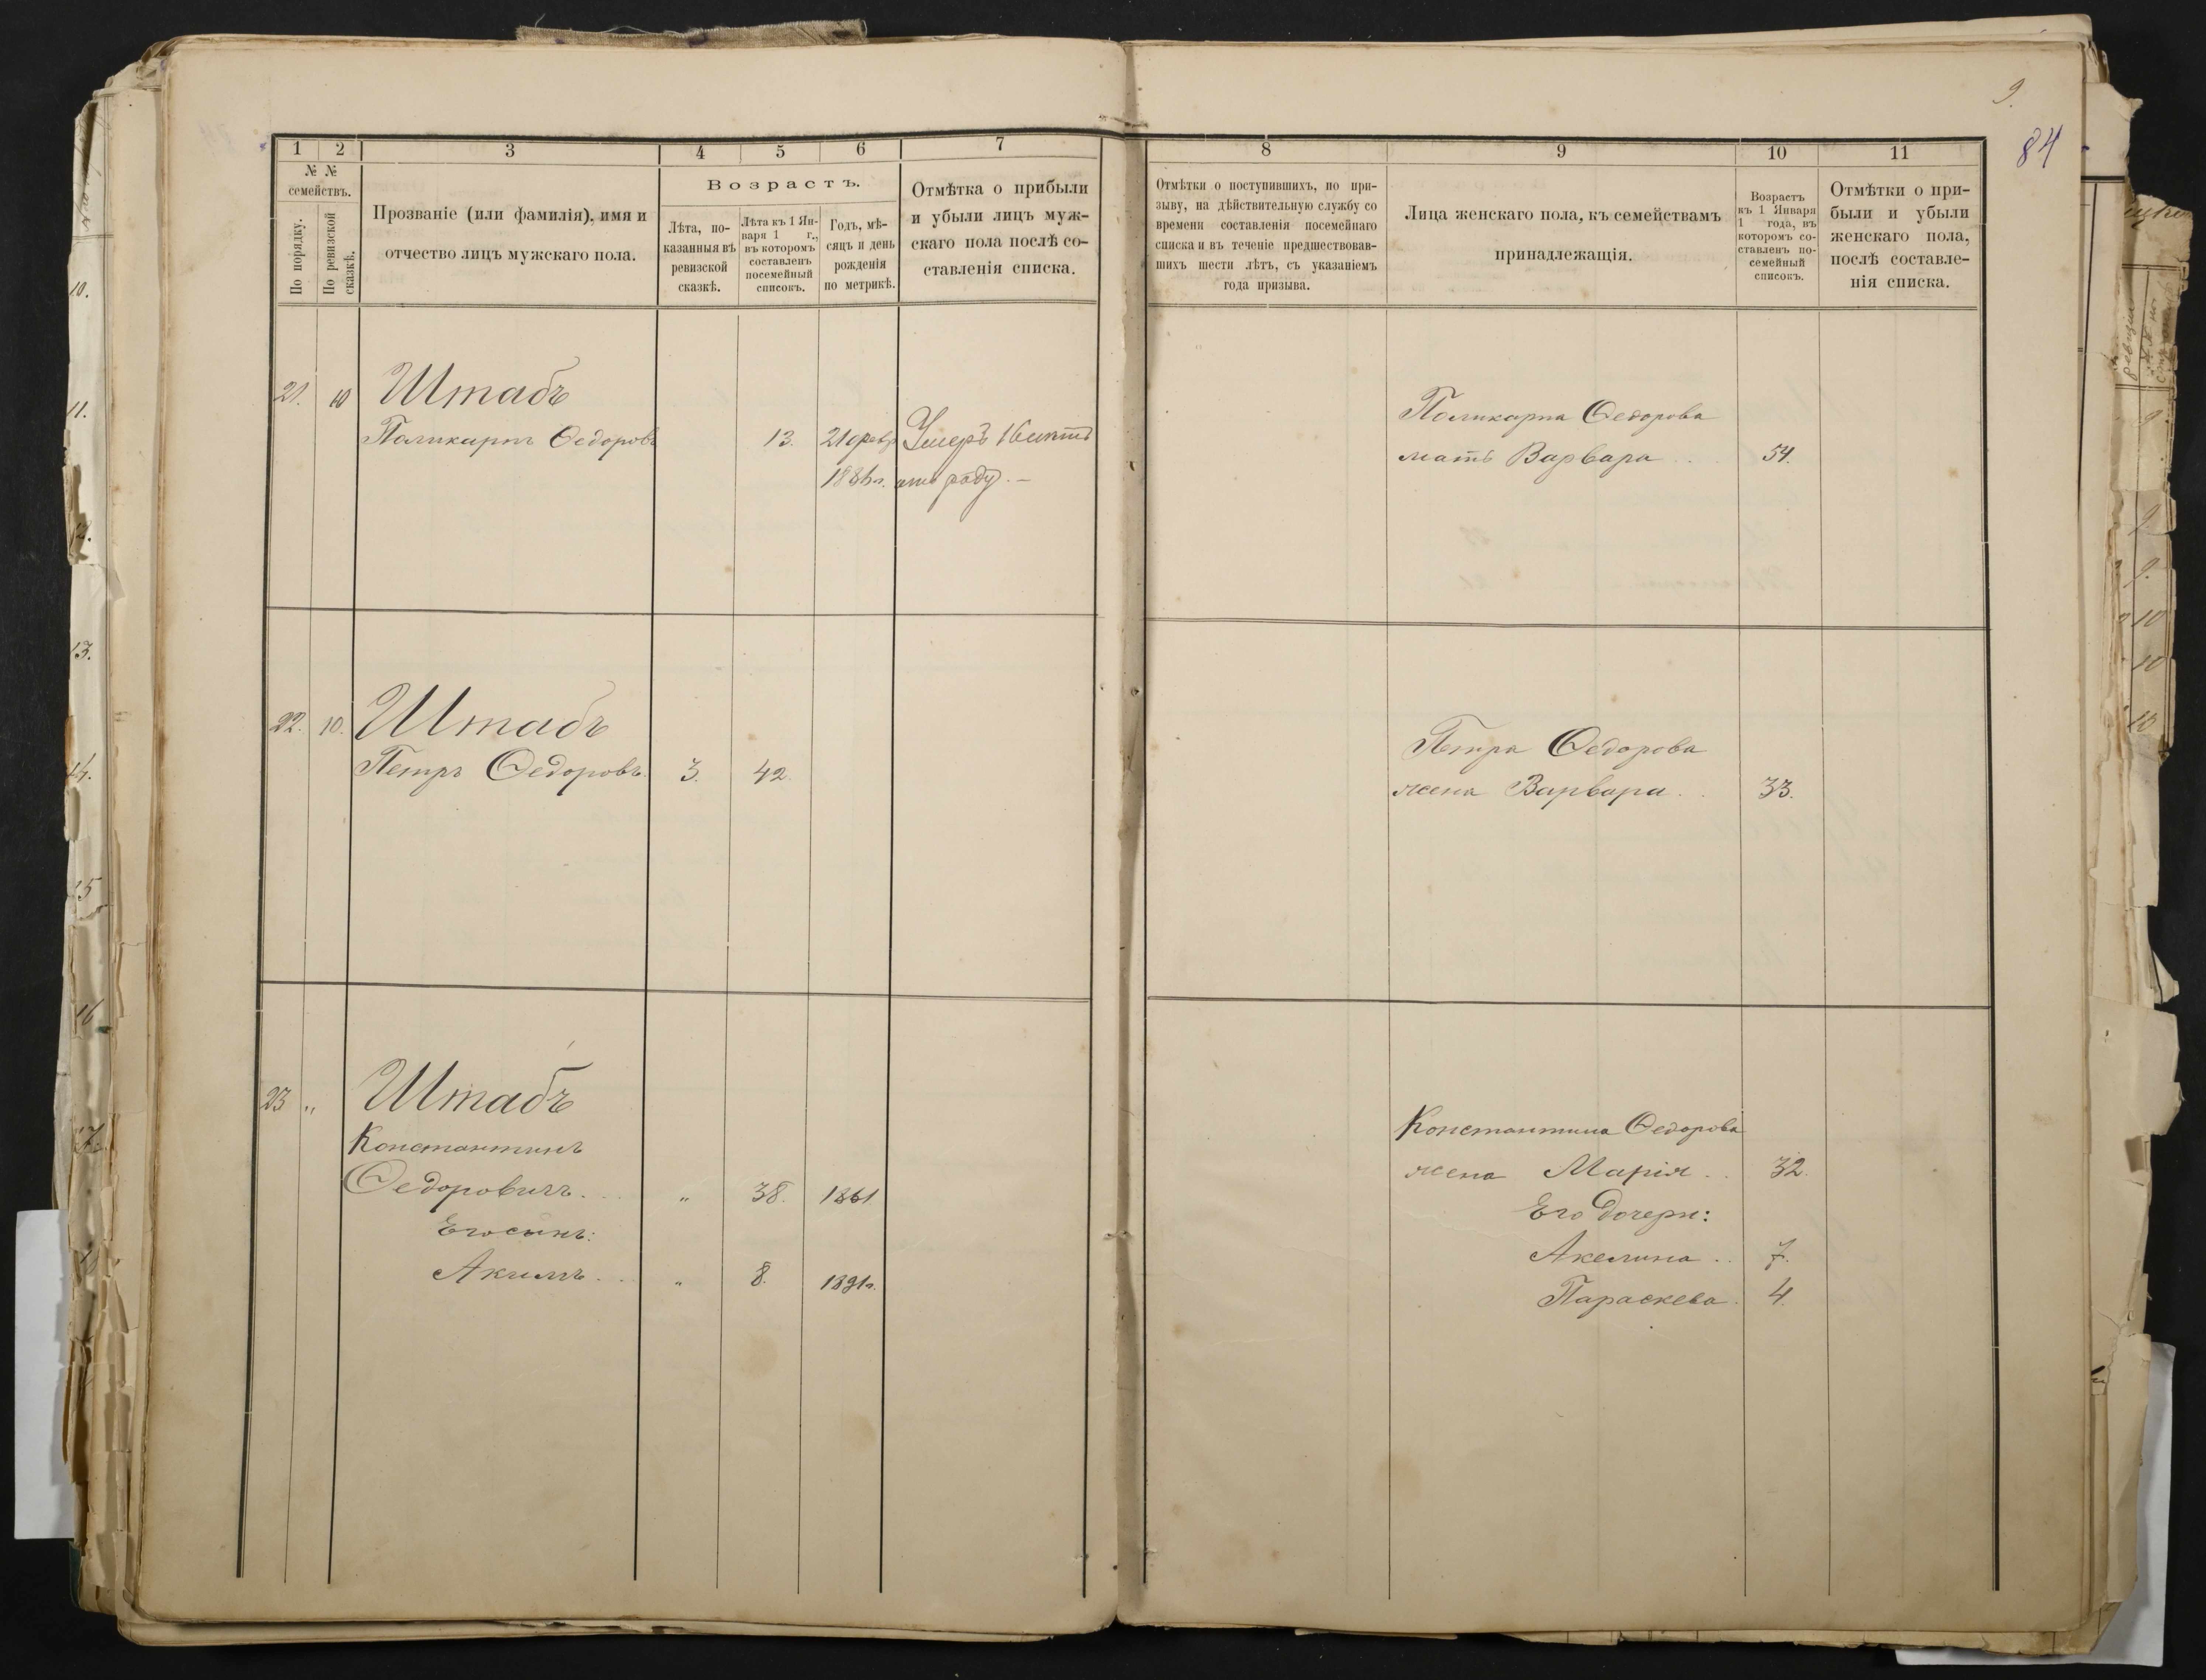 9.
84
1 2 3 4 5 6 7
№ №
семействъ.
По порядку.
По ревизской
сказкѣ.
Прозваніе (или фамилія), имя и
отчество лицъ мужскаго пола.
Возрастъ.
Лѣта, по-
казанныя въ
ревизской
сказкѣ.
Лѣта къ 1 Ян-
варя 1 г.,
въ которомъ
составленъ
посемейный
списокъ.
Годъ, мѣ-
сяцъ и день
рожденія
по метрикѣ.
Отмѣтка о прибыли
и убыли лицъ муж-
скаго пола послѣ со-
ставленія списка.
21. 10 Штабъ
Поликарпъ Ѳедоровъ 13. 21 февр Умеръ 16
188 г.
22. 10. Штабъ
Петръ Ѳедоровъ. 3. 42.
23 " Штабъ
Константинъ
Ѳедоровичъ. " 38. 1861
Его сынъ:
Акимъ. " 8. 1891г.
8 9 10 11
Отмѣтки о поступившихъ, по при-
зыву, на дѣйствительную службу со
времени составленія посемейнаго
списка и въ теченіе предшествовав-
шихъ шести лѣтъ, съ указаніемъ
года призыва.
Лица женскаго пола, къ семействамъ
принадлежащія.
Возрастъ
къ 1 Января
1 года, въ
которомъ со-
ставленъ по-
семейный
списокъ.
Отмѣтки о при-
были и убыли
женскаго пола,
послѣ составле-
нія списка.
Поликарпа Ѳедорова
мать Варвара 54.
Петра Ѳедорова
жена Варвара. 33.
Константина Ѳедорова
жена Марія. 32.
Его дочери:
Акелина. 7.
Параскева. 4.
10.
11.
12.
13.
14.
15
16